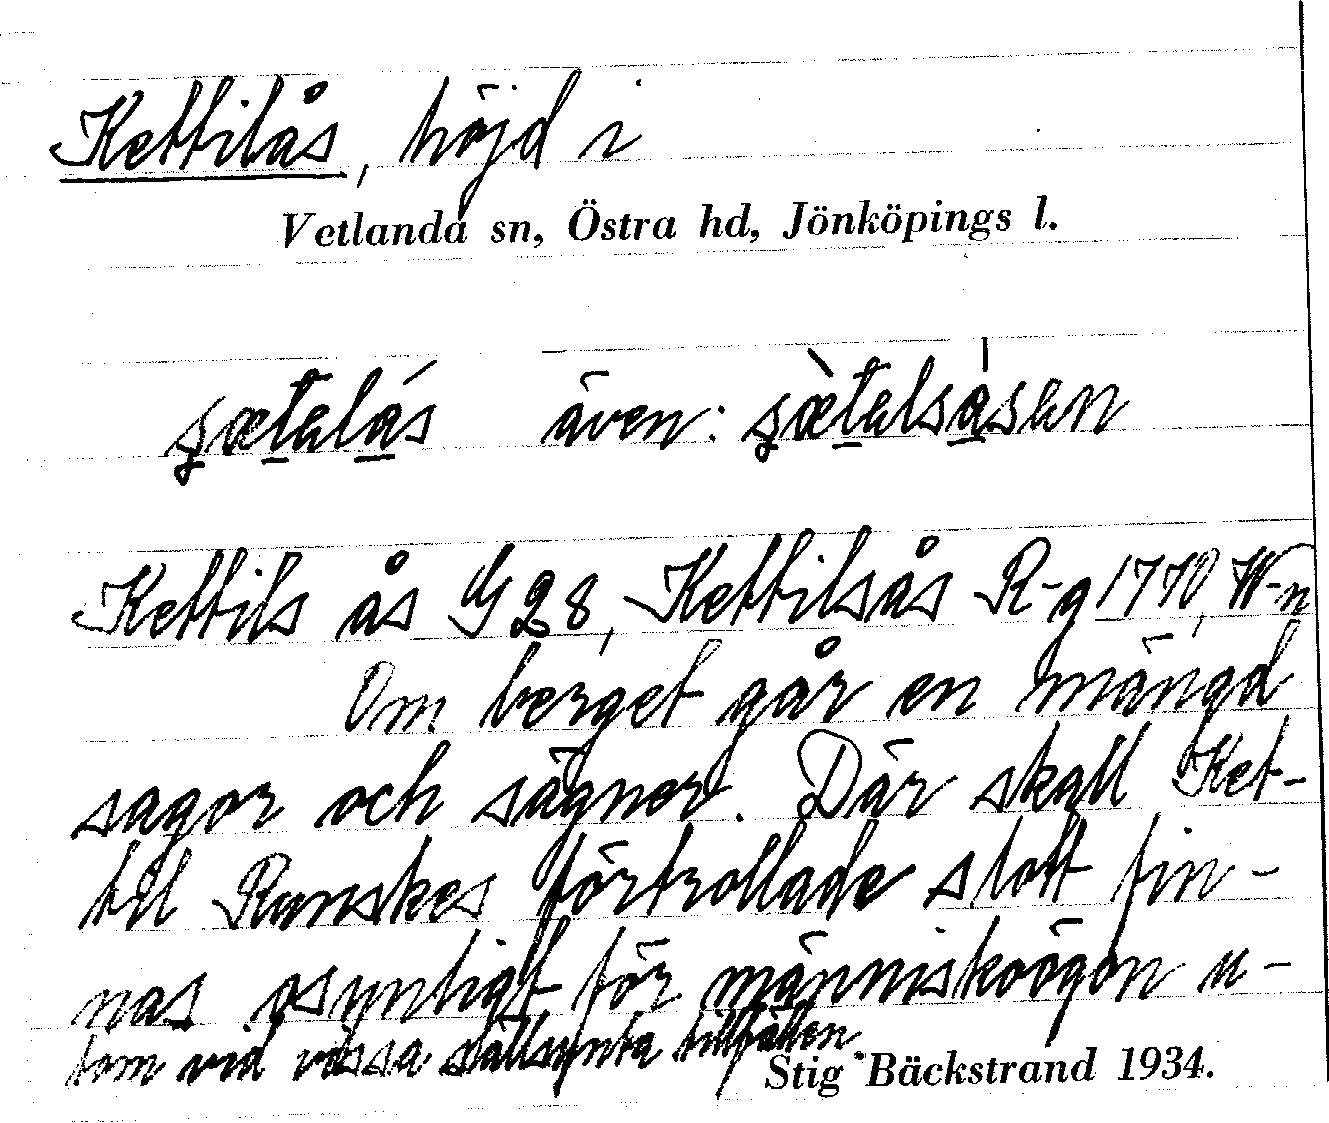 Kettilås, höjd i
Vetlanda sn, Östra hd, Jönköpings l.
även:
Kettils ås G 28, Kettilsås R-g 1770, W-n
Om berget går en mängd
sagor och sägner. Där skall Ket-
til Runskes förtrollade slott fin-
nas osynligt för människoögon u-
tom vid vissa sällsynta tillfällen
Stig Bäckstrand 1934.